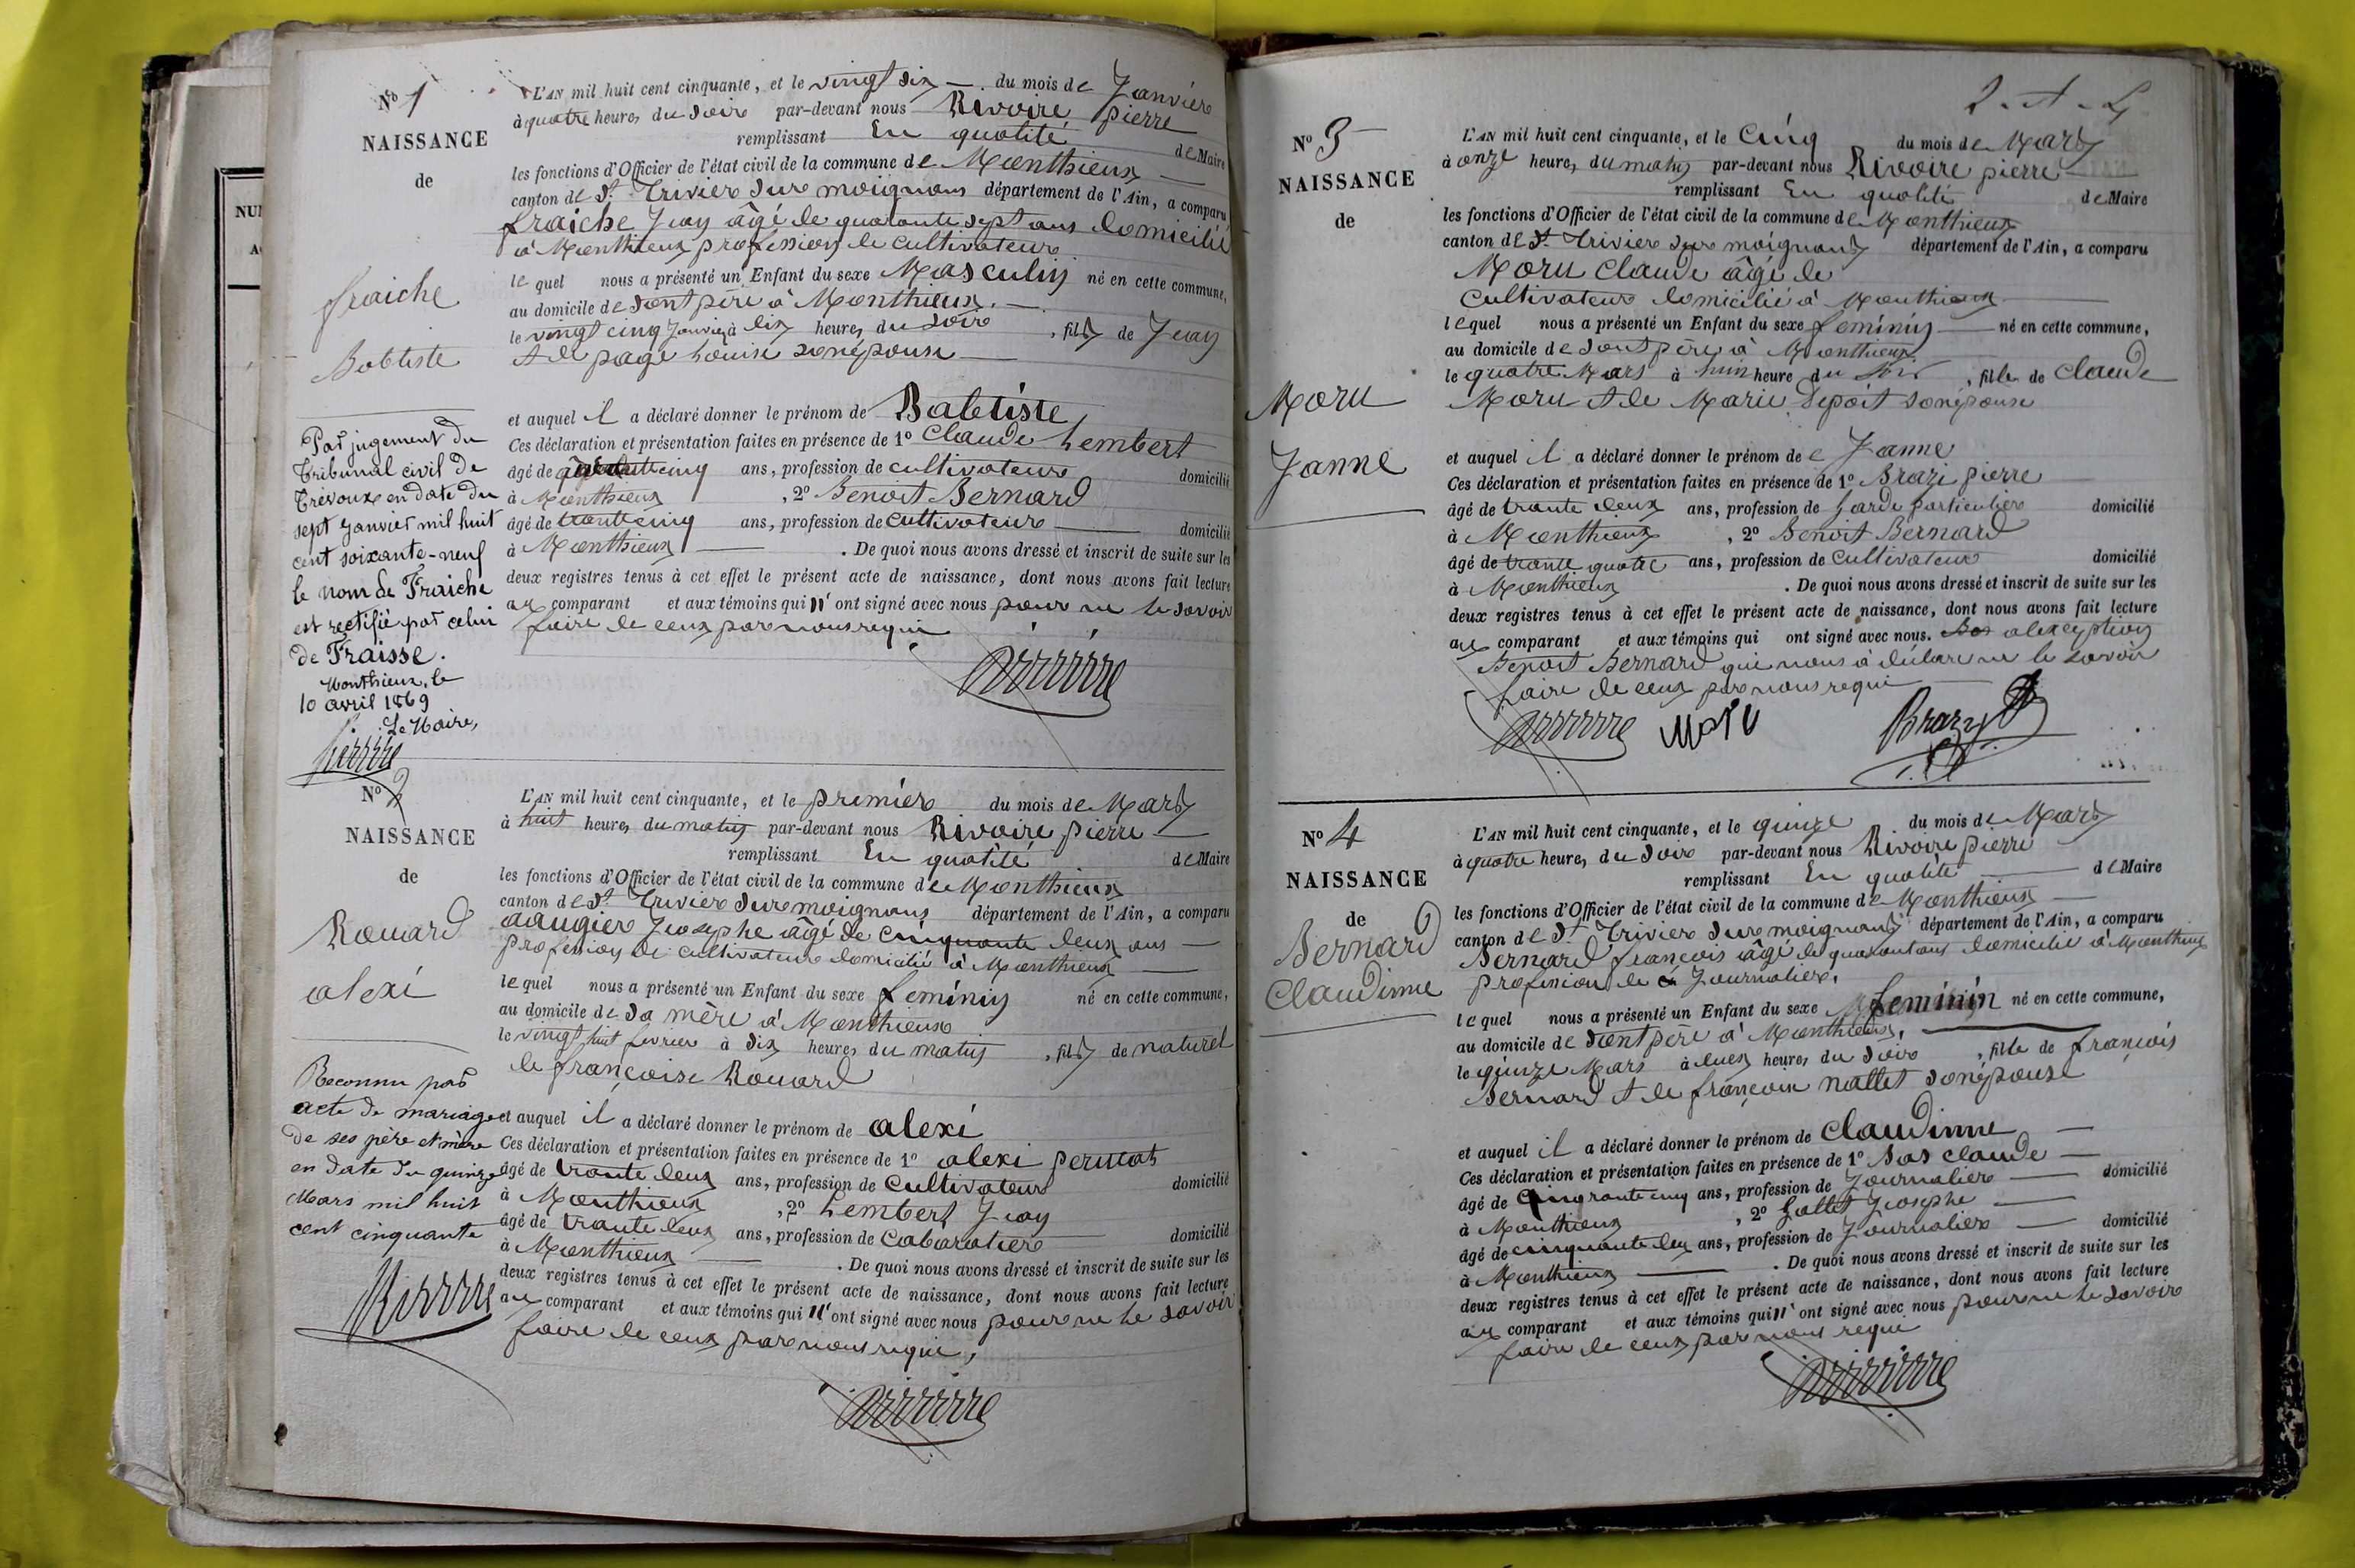 N° 1
NAISSANCE
de
fraiche
Babtiste
L'AN mil huit cent cinquante, et le vingt six du mois de Janvier
à quatre heures du soire par-devant nous Rivoire pierre
remplissant En qualité de Maire
les fonctions d'Officier de l'état civil de la commune de Monthieux
canton de St Trivier sure moignans département de l'Ain, a comparu
fraiche Jean âgé de quarante sept ans domicilié
à Monthieux profession de cultivateur
le quel nous a présenté un Enfant du sexe Masculin né en cette commune,
au domicile de sont père à Monthieux.
le vingt cinq Janvier à dix heures du soire , fils de Jean
et de page Louise sonépouse
et auquel il a déclaré donner le prénom de Babtiste
Ces déclaration et présentation faites en présence de 1° Claude Lembert
âgé de ans, profession de cultivateur domicilié
à Monthieux , 2° Benoit Bernard
âgé de trante cinq ans, profession de cultivateur domicilié
à Monthieux . De quoi nous avons dressé et inscrit de suite sur les
deux registres tenus à cet effet le présent acte de naissance, dont nous avons fait lecture
au comparant et aux témoins qui n'ont signé avec nous pour ne le savoir
faire de ceux pare nous requi
Par jugement du
Tribunal civil de
Trévoux en date du
sept Janvier mil huit
cent soixante-neuf
le nom de Fraiche
est rectifié par celui
de Fraisse.
Monthieux, le
10 avril 1869
Le Maire,
N° 2
NAISSANCE
de
Rouard
alexi
L'AN mil huit cent cinquante, et le premier du mois de Mars
à huit heures du matin par-devant nous Rivoire pierre
remplissant En qualité de Maire
les fonctions d'Officier de l'état civil de la commune de Monthieux
canton de St Trivier sure moignans département de l'Ain, a comparu
augier Josephe âgé de cinquante deux ans
profession de cultivateur domicilié à Monthieux
le quel nous a présenté un Enfant du sexe feminin né en cette commune,
au domicile de sa mère à Monthieux
le vingt huit fevrier à dix heures du matin , fils de naturel
de françoise Rouard
et auquel il a déclaré donner le prénom de alexi
Ces déclaration et présentation faites en présence de 1° alexi
âgé de trante deux ans, profession de cultivateur domicilié
à Monthieux , 2° Lembert Jean
âgé de trante deux ans, profession de Cabaratier domicilié
à Monthieux . De quoi nous avons dressé et inscrit de suite sur les
deux registres tenus à cet effet le présent acte de naissance, dont nous avons fait lecture
au comparant et aux témoins qui n'ont signé avec nous pour ne le savoir
faire de ceux pare nous requi,
Reconnu par
acte de mariage
de ses père et mère
en date du quinze
Mars mil huit
cent cinquante
N° 3
NAISSANCE
de
Moru
Janne
L'AN mil huit cent cinquante, et le Cinq du mois de Mars
à onze heures du matin par-devant nous Rivoire pierre
remplissant En qualité de Maire
les fonctions d'Officier de l'état civil de la commune de Monthieux
canton de St Trivier sure moignans département de l'Ain, a comparu
Moru Claude âgé de
Cultivateur domicilié à Monthieux
le quel nous a présenté un Enfant du sexe feminin né en cette commune,
au domicile de sont père à Monthieux
le quatre Mars à heure du soir , fille de Claude
Moru et de Marie sonépouse
et auquel il a déclaré donner le prénom de Janne
Ces déclaration et présentation faites en présence de 1° Brazi pierre
âgé de trante deux ans, profession de garde particulier domicilié
à Monthieux , 2° Benoit Bernard
âgé de trante quatre ans, profession de Cultivateur domicilié
à Monthieux . De quoi nous avons dressé et inscrit de suite sur les
deux registres tenus à cet effet le présent acte de naissance, dont nous avons fait lecture
au comparant et aux témoins qui ont signé avec nous. alexeption
Benoit Bernard qui nous à déclare ne le savoir
faire de ceux pare nous requi
Moru
N° 4
NAISSANCE
de
Bernard
Claudinne
L'AN mil huit cent cinquante, et le quinze du mois de Mars
à quatre heures du soire par-devant nous Rivoire pierre
remplissant En qualité de Maire
les fonctions d'Officier de l'état civil de la commune de Monthieux
canton de St Trivier sure moignans département de l'Ain, a comparu
Bernard françois âgé de quarant ans domicilié à Monthieux
profession de Journalier.
le quel nous a présenté un Enfant du sexe feminin né en cette commune,
au domicile de sont père à Monthieux,
le quinze Mars à deux heures du soire , fille de françois
Bernard et de françoise nallet sonépouse
et auquel il a déclaré donner le prénom de Claudinne
Ces déclaration et présentation faites en présence de 1° Bas claude
âgé de cinqrante cinq ans, profession de Journalier domicilié
à Monthieux , 2° Josephe
âgé de cinquante deux ans, profession de Journalier domicilié
à Monthieux . De quoi nous avons dressé et inscrit de suite sur les
deux registres tenus à cet effet le présent acte de naissance, dont nous avons fait lecture
au comparant et aux témoins qui n'ont signé avec nous pour ne le savoir
faire de ceux par nous requi